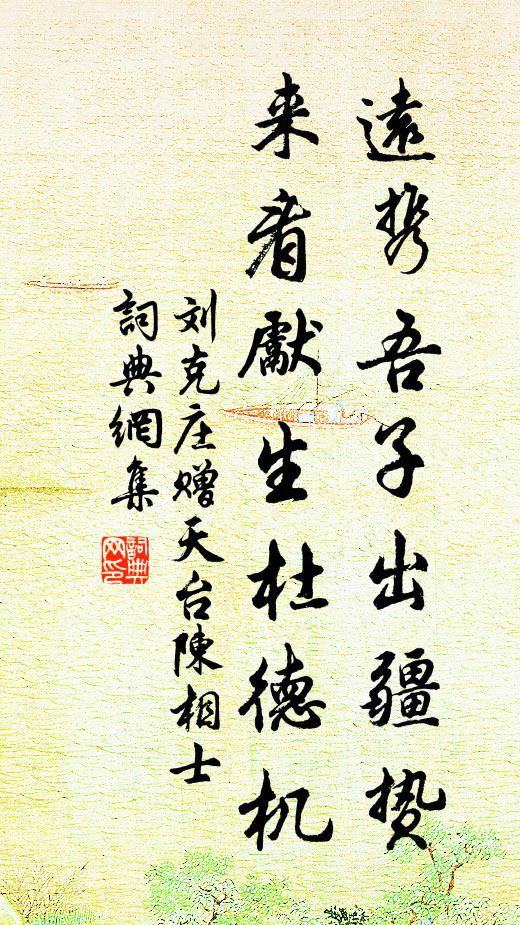 遠携吾子出疆贽
来看獻生杜德机
刘克庄赠天台陳相士
詞典網集
詞典
网印